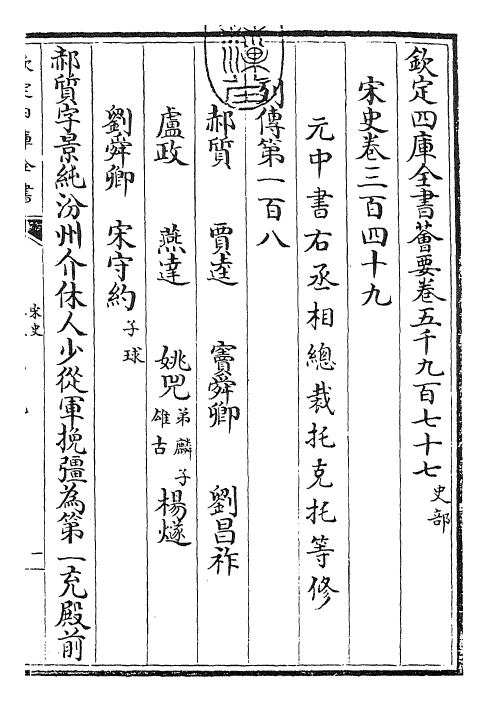 欽定四庫全書薈要卷五千九百七十七 史部
宋史卷三百四十九
元中書右丞相總裁托克托等修
列傳第一百八
郝質 賈逵 竇舜卿 劉昌祚
盧政 燕達 姚兕 弟麟 子雄古 楊燧
劉舜卿 宋守約 子球
郝質字景純汾州介休人少從軍挽彊為第一充殿前
欽定四庫全書
宋史